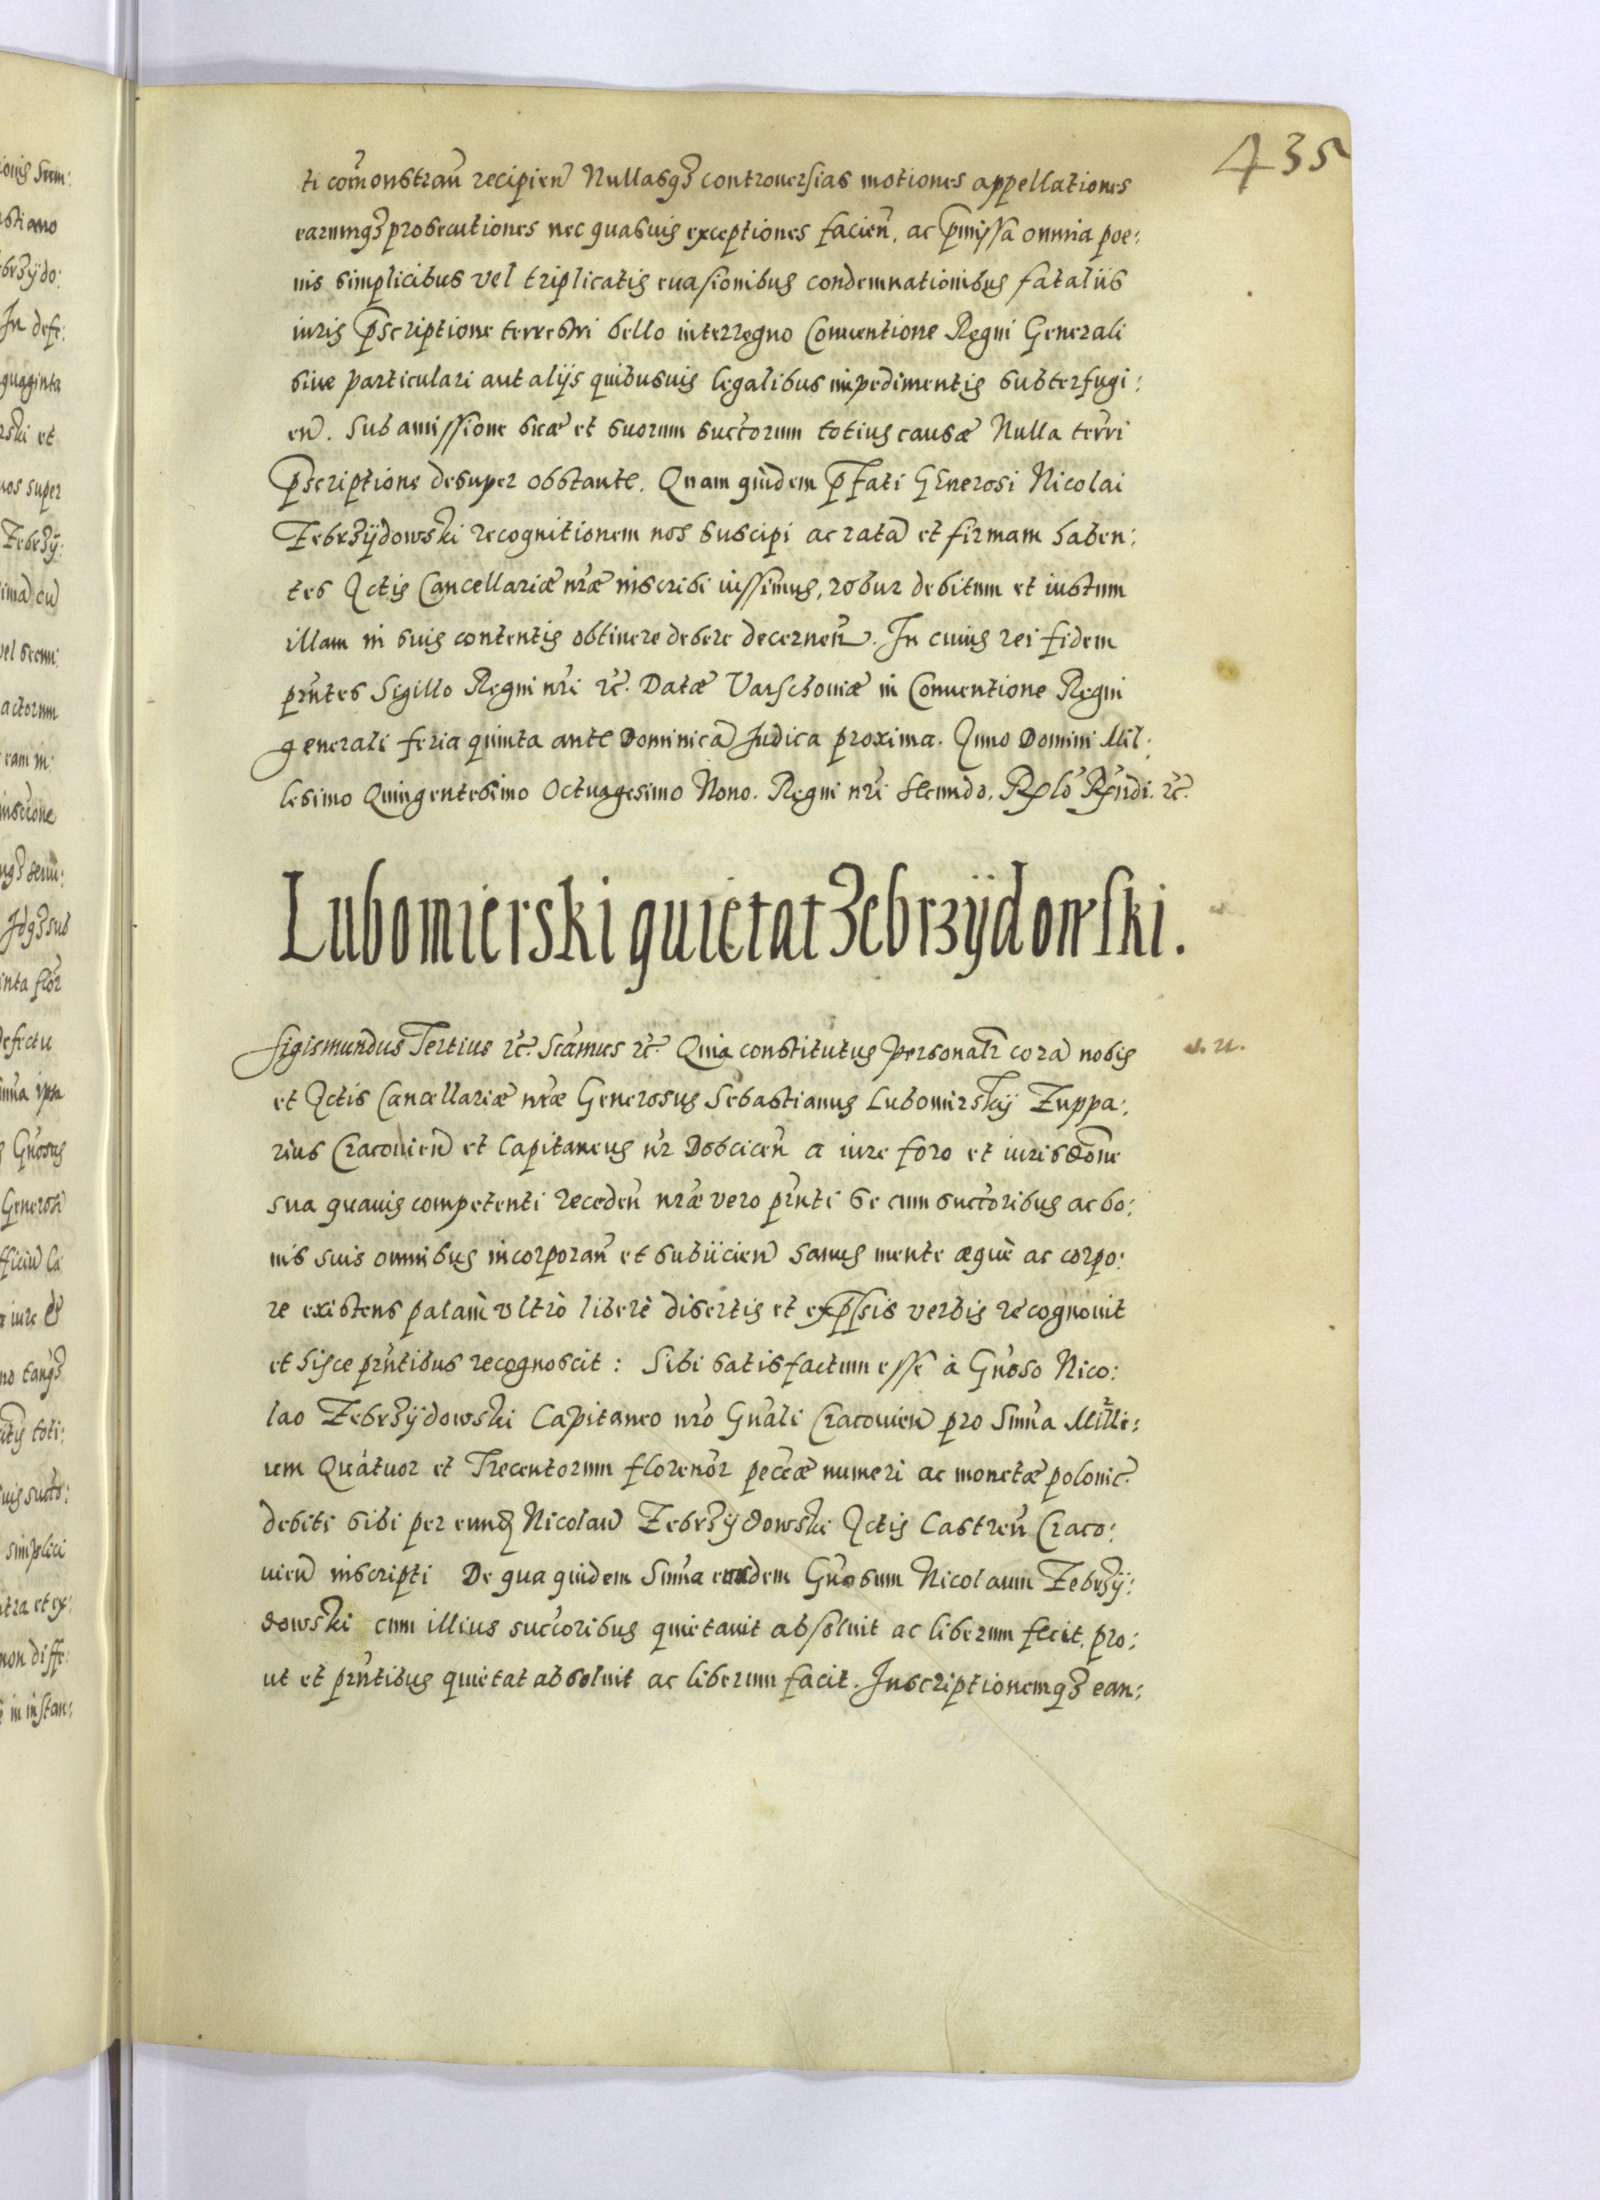 435
ti com̃onstrañ recipien̄ Nullasqʒ controuersias motiones appellationes
earumqʒ prosecutiones nec quasuis exceptiones facieñ, ac p̄missa omnia poe:
nis simplicibus vel triplicatis euasionibus condemnationibus fataliis
iuris p̄scriptione terrestri bello interregno Conuentione Regni Generali
siue particulari aut alijs quibusuis legalibus impedimentis subterfugi:
en̄. Sub amissione suæ et suorum suc̃torum totius causæ Nulla terr̃i
p̄scriptione desuper obstante. Quam quidem p̄fati Generosi Nicolai
Zebrzÿdowski recognitionem nos suscipi ac ratā et firmam haben:
tes Actis Cancellariæ nr̃æ inscribi iussimus, robur debitum et iustum
illam in suis contentis obtinere debere decerneñ. In cuius rei fidem
prñtes Sigillo Regni nr̃i rc̃. Datæ Varschouiæ in Conuentione Regni
generali feria quinta ante Dominicā Judica proxima. Anno Domini Mil:
lesimo Quingentesimo Octuagesimo Nono. Regni nr̃i Secundo. Rẽlo Rñdi. rc̃.
Lubomierski quietat Zebrzÿdowski.
Sigismundus Tertius rc̃. Scãmus rc̃. Quia constitutus personalr̃ corā nobis
et Actis Cancellariæ nr̃æ Generosus Sebastianus Lubomirskÿ Zuppa:
rius Cracouien̄ et Capitaneus nr̃ Dobcicen̄ a iure foro et iurisdōne
sua quauis competenti recedeñ nr̃æ vero prñti se cum suc̃toribus ac bo:
nis suis omnibus incorporañ et subiicien̄ sanus mente æquè ac corpo:
re existens palam̀ vltrò liberè disertis et exp̄ssis verbis recognouit
et hisce prñtibus recognoscit: Sibi satisfactum esse à Gñoso Nico:
lao Zebrzÿdowski Capitaneo nr̃o Gñali Cracouien̄ pro Sum̃a Mill̃i:
um Quatuor et Trecentorum florenor̃ pec̃æ numeri ac monetæ polonic̃.
debiti sibi per eundē Nicolaū Zebrzÿdowski Actis Castreñ Craco:
uien̄ inscripti De qua quidem Sum̃a eundem Gñosum Nicolaum Zebrzÿ:
dowski cum illius suc̃toribus quietauit absoluit ac liberum fecit, pro:
ut et prñtibus quietat absoluit ac liberum facit. Inscriptionemqʒ ean: